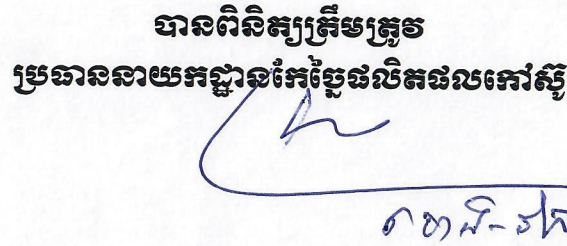 បានពិនិត្យត្រឹមត្រូវ
ប្រធាននាយកដ្ឋានកែច្នៃផលិតផលកៅស៊ូ